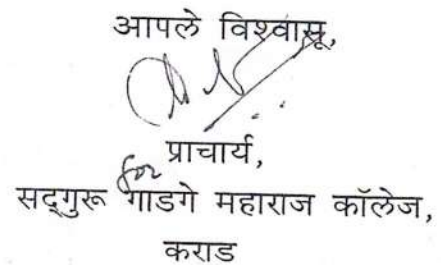 आपले विश्वासू,
प्राचार्य,
for
सद्‌गुरू गाडगे महाराज कॉलेज,
कराड